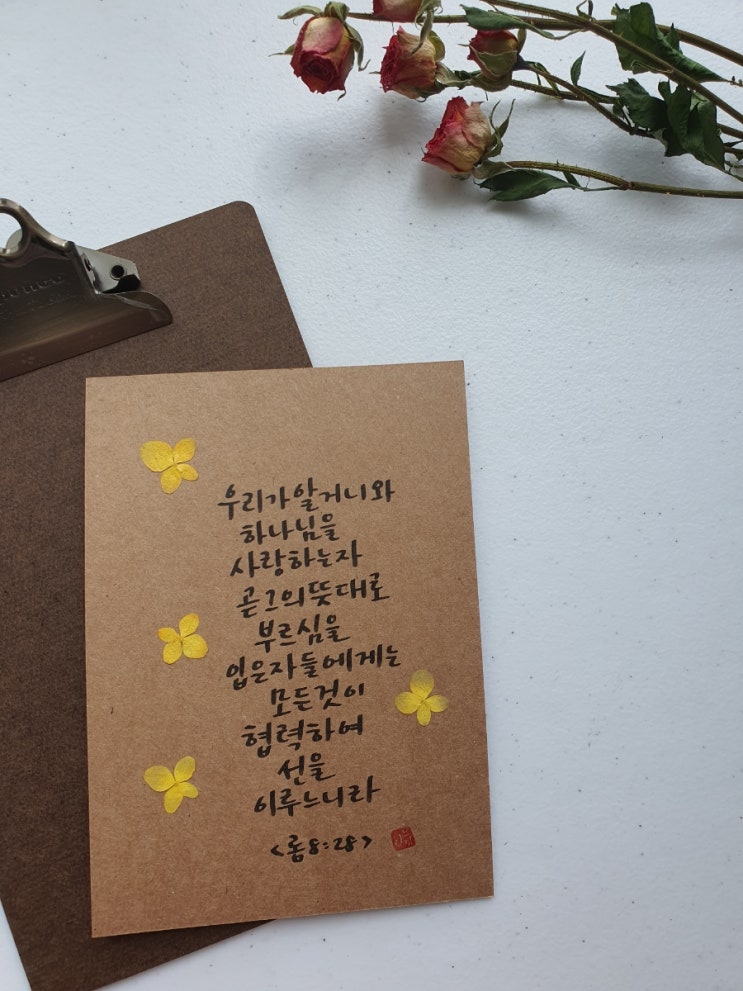 우리가알거니와
하나님을
사랑하는자
곧그의뜻대로
부르심을
입은자들에게는
모든것이
협력하여
선을
이루느니라
<롬8:28>